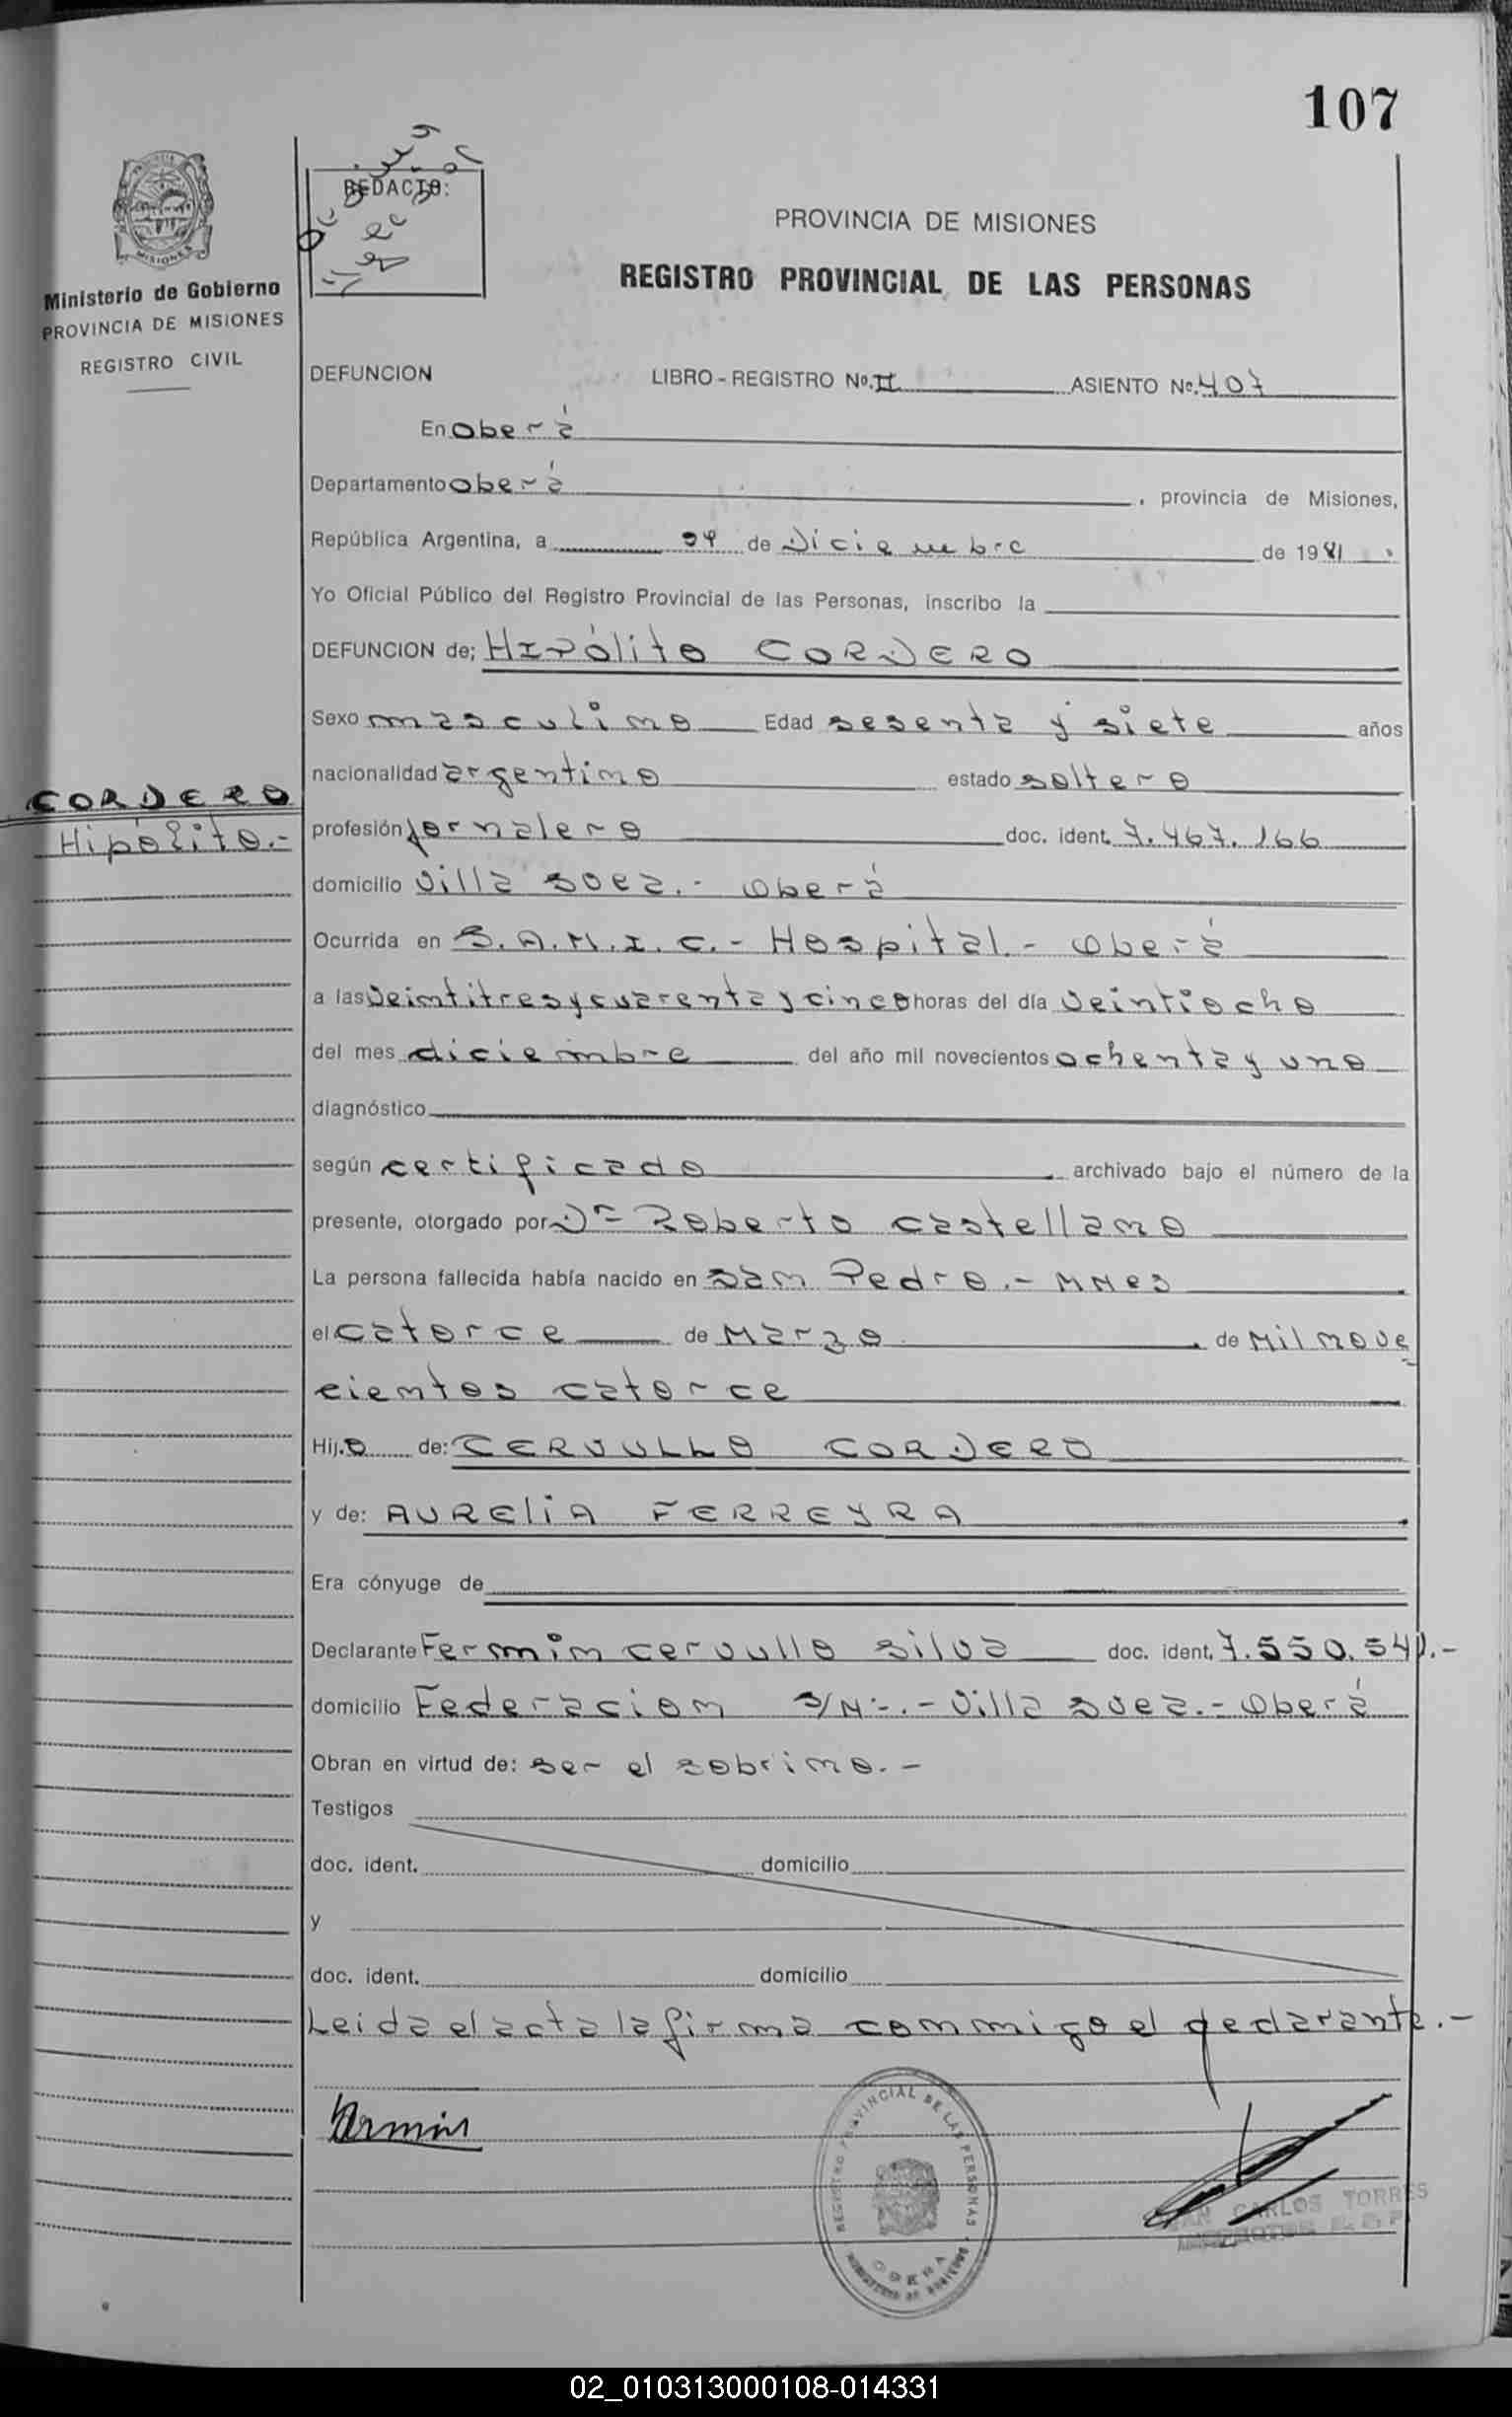 107
REDACTO:
PROVINCIA DE MISIONES
REGISTRO PROVINCIAL DE LAS PERSONAS
MISIONES
Ministerio de Gobierno
PROVINCIA DE MISIONES
REGISTRO CIVIL
DEFUNCION LIBRO-REGISTRO No. II ASIENTO No. 407
En Oberá
Departamento Oberá , provincia de Misiones,
República Argentina, a de Diciembre de 1981
Yo Oficial Público del Registro Provincial de las Personas, inscribo la
DEFUNCION de; HIPólito CORDERO
Sexo masculino Edad sesenta y siete años
nacionalidad argentino estado soltero
CORDERO
Hipólito.-
profesión jornalero doc. ident. 7.467.166
domicilio Villa Suez.- Oberá
Ocurrida en S.A.M.I.C.- Hospital.- Oberá
a las Veintitres y cuarenta y cinco horas del día Veintiocho
del mes diciembre del año mil novecientos ochenta y uno
diagnóstico
según certificado archivado bajo el número de la
presente, otorgado por Dr Roberto Castellano
La persona fallecida había nacido en San Pedro.- MNes
el catorce de Marzo de Mil nove
cientos catorce
Hij.o de: CERVULLO CORDERO
y de: AURELIA FERREYRA
Era cónyuge de
Declarante Fermin cervullo Silva doc. ident. 7.550.541.-
domicilio Federacion S/Nº.- Villa Suez.- Oberá
Obran en virtud de: ser el sobrino.-
Testigos
doc. ident. domicilio
y
doc. ident. domicilio
Leida el acta la firma conmigo el declarante.-
Fermin
REGISTRO PROVINCIAL DE LAS PERSONAS
OBERA
MINISTERIO DE GOBIERNO
JUAN CARLOS TORRES
02_010313000108-014331